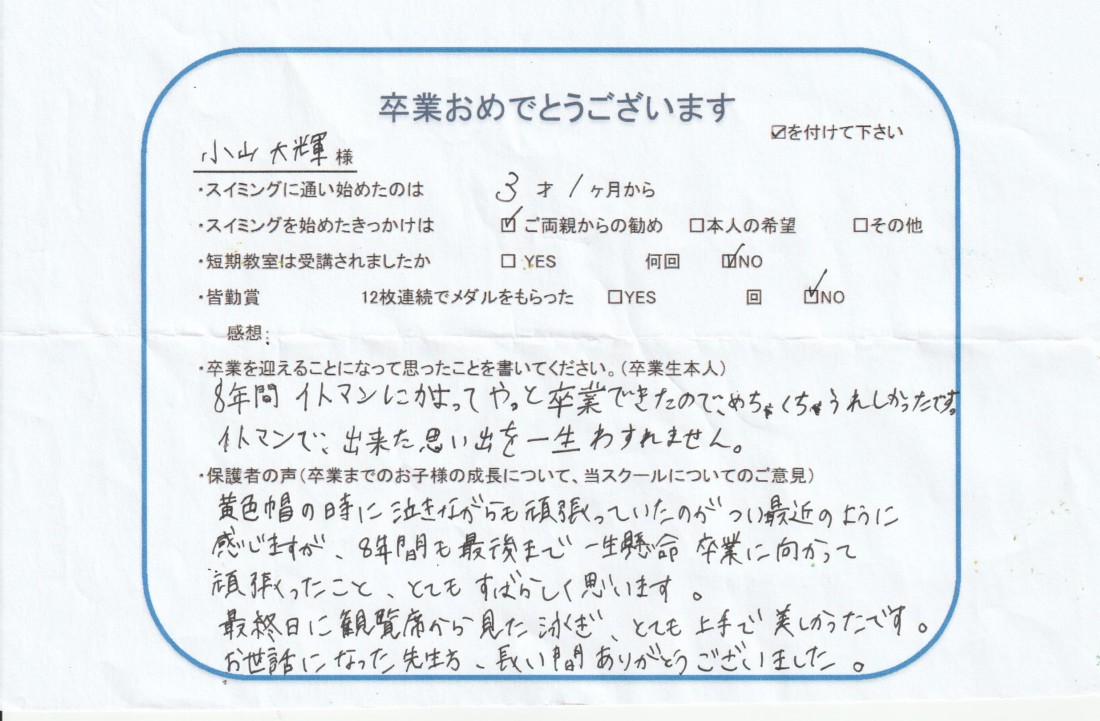 卒業おめでとうございます
☑を付けて下さい
小山大輝 様
・スイミングに通い始めたのは 3 才 1 ヶ月から
・スイミングを始めたきっかけは ☑ご両親からの勧め □本人の希望 □その他
・短期教室は受講されましたか □ YES 何回 ☑NO
・皆勤賞 12枚連続でメダルをもらった □YES 回 ☑NO
感想:
・卒業を迎えることになって思ったことを書いてください。(卒業生本人)
8年間イトマンにかよってやっと卒業できたので、めちゃくちゃうれしかったです。
イトマンで、出来た思い出を一生わすれません。
・保護者の声(卒業までのお子様の成長について、当スクールについてのご意見)
黄色帽の時に泣きながらも頑張っていたのがつい最近のように
感じますが、8年間も最後まで一生懸命卒業に向かって
頑張ったこと、とてもすばらしく思います。
最終日に観覧席から見た泳ぎ、とても上手で美しかったです。
お世話になった先生方、長い間ありがとうございました。